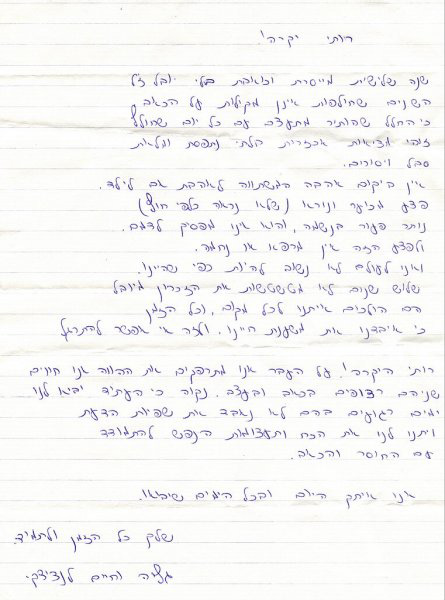 רותי יקרה!
שנה שלישית מייסרת וכואבת בלי יובל ז"ל
השנים שחולפות אינן מקילות על הכאב
כי החלל שהותיר מתעצב עם כל יום שחולף
זוהי מציאות אכזרית הלתי נתפסת ומלאת
סבל ויסורים.
אין ביקום אהבה המשתווה לאהבת אם לילד.
פצע מכוער ונורא (שלא נראה כלפי חוץ)
נותר פעור בנשמה, והוא אינו מפסיק לדמם.
ולפצע הזה אין מרפא או נחמה.
ואני לעולם לא נשוב להיות כפי שהיינו.
שלוש שנים לא מטשטשות את הזכרון מיובל
הם הולכים איתנו לכל מקום, וכל הזמן
כי איבדנו את משענת חיינו. ולזה אי אפשר להתרגל
רותי היקרה! על העבר אנו מתרפקים את ההווה אנו חווים
שניהם רצופים בכאב ובעצב. נקווה כי העתיד יביא לנו
ימים רגועים בהם לא נאבד את שפיות הדעת
ויתנו לנו את הכח ותעצומות הנפש להתמודד
עם החוסר והכאב.
אנו איתך היום ובכל הימים שיבואו.
שלך כל הזמן ולתמיד.
וחיים לנדידקי